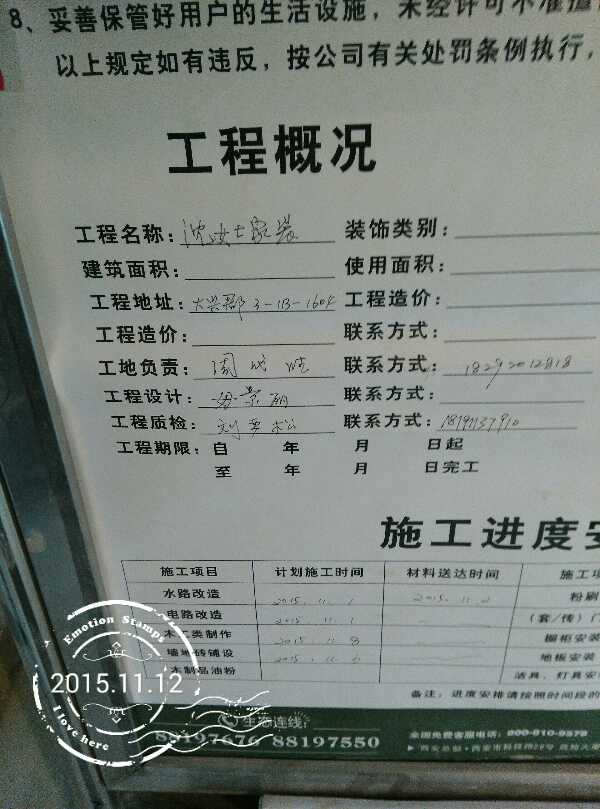 8、妥善保管好用户的生活设施，未经许可不准擅
以上规定如有违反，按公司有关处罚条例执行，
工程概况
工程名称：沈女士家装 装饰类别：
建筑面积： 使用面积：
工程地址：大兴郡3-1B-1604 工程造价：
工程造价： 联系方式：
工地负责：周 联系方式：18292012818
工程设计： 景丽 联系方式：
工程质检：刘 松 联系方式：18191137910
工程期限：自 年 月 日起
至 年 月 日完工
施工进度安
施工项目 计划施工时间 材料送达时间 施工项
水路改造 2015.11.1 2015.11.2 粉刷
电路改造 2015.11.1 （套/传）门
木工类制作 2015.11.8 橱柜安装
墙地砖铺设 2015.11.6 地板安装
木制品油粉 洁具、灯具安
备注：进度安排请按照时间段的
Emotion Stamps
2015.11.12
I love here
生态连线：
88197676 88197550
全国免费客服电话：800-810-9579